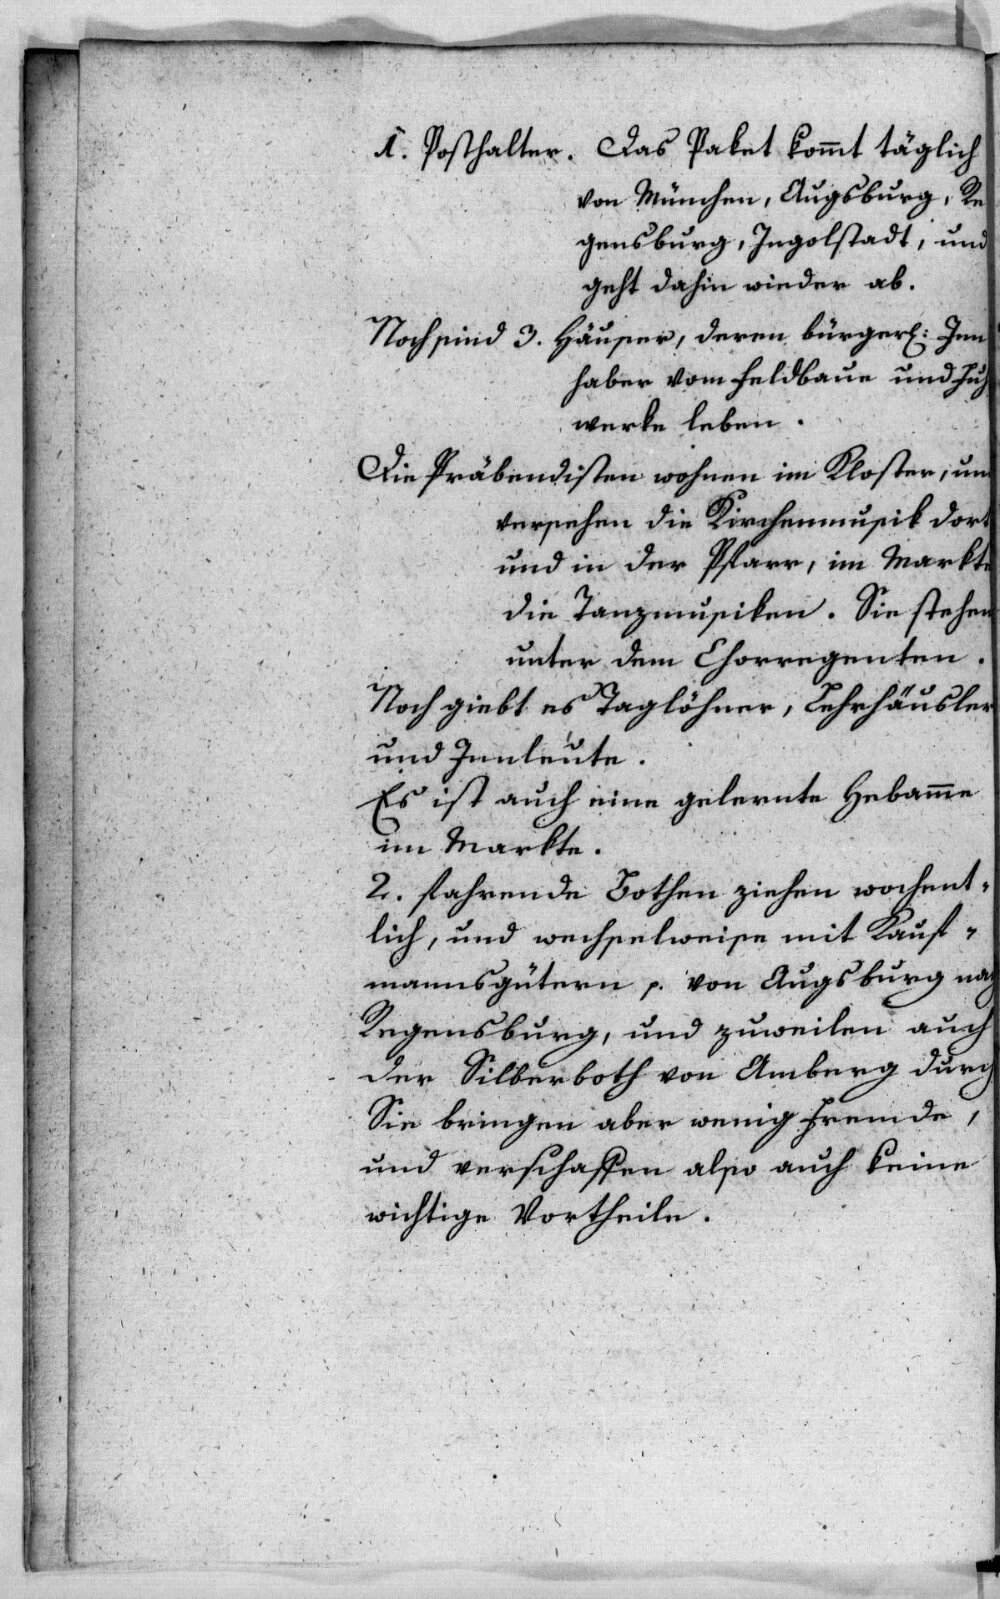 1. Posthalter. Das Paket kom̅t täglich
von München, Augsburg, Re
gensburg, Ingolstadt, und
geht dahin wieder ab.
Noch sind 3. Häuser, deren bürgerl: Inn
haber vom Feldbaue und Fuh
werke leben.
Die Präbendisten wohnen im Kloster, und
versehen die Kirchenmusik dort
und in der Pfarr, im Markte
die Tanzmusiken. Sie stehen
unter dem Chorregenten.
Noch giebt es Taglöhner, Lehrhäusler
und Innleute.
Es ist auch eine gelernte Hebam̅e
im Markte.
2. fahrende Bothen ziehen wochent-
lich, und wechselweise mit Kauf-
mannsgütern p. von Augsburg nach
Regensburg, und zuweilen auch
der Silberboth von Amberg durch
Sie bringen aber wenig Fremde,
und verschaffen also auch keine
wichtige Vortheile.